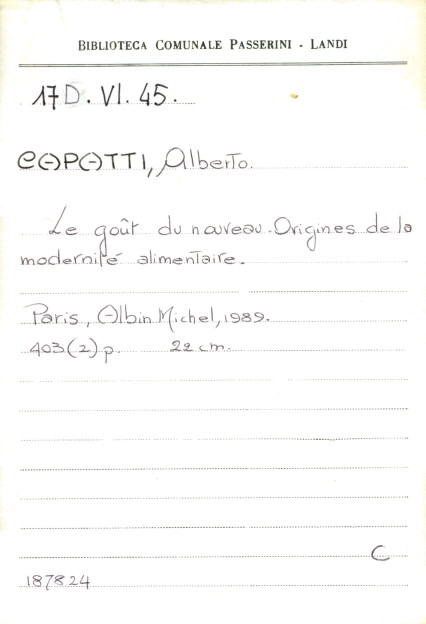 BIBLIOTECA COMUNALE PASSERINI - LANDI
17D. VI. 45.
CAPATTI, Alberto.
Le goût du nouveau. Origines de la
modernité alimentaire.
Paris, Albin Michel, 1989.
403(2) p. 22 cm.
C
187824